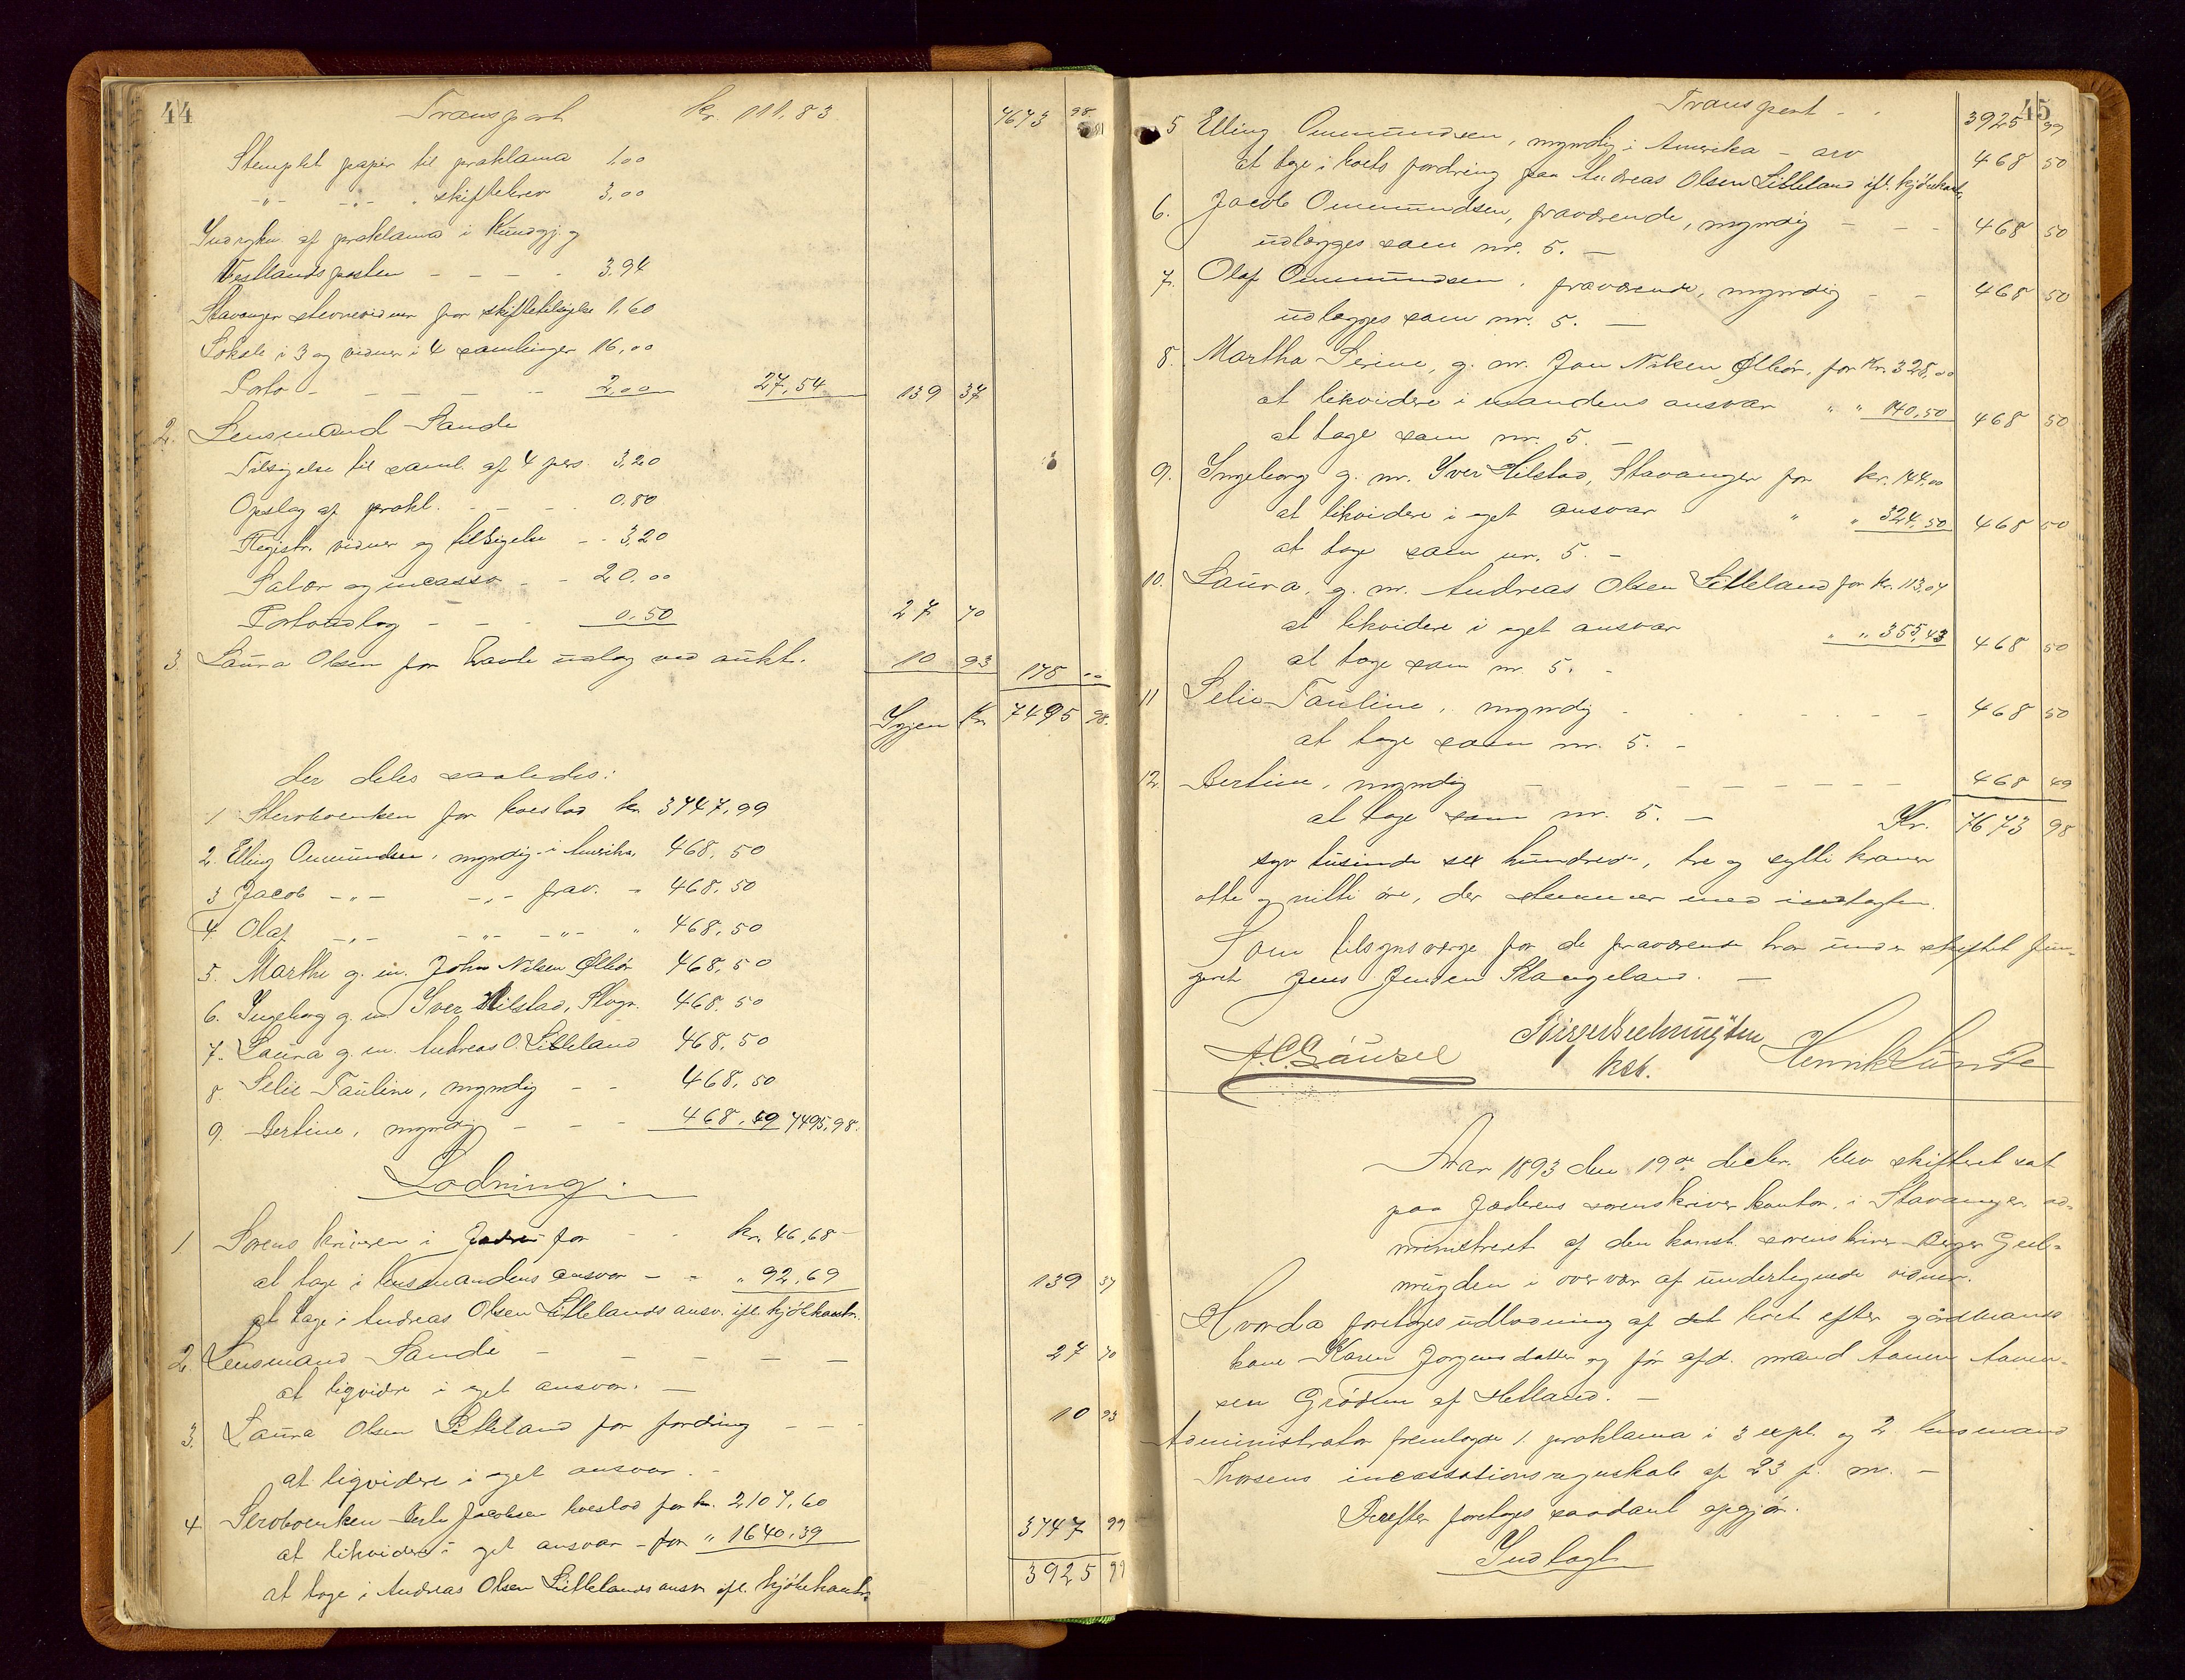 44
Transport kr. 111,83 7673 98
Stemplet papir til proklama 1.00
-"- -"- skiftebrev 3,00
Indrykn. af proklama i Kundgj. og
Vestlandsposten - - - - 3.94
Stavanger stevnevidner for skiftetilsigelse 1,60
Lokale i 3 og vidner i 4 samlinger 16,00
Porto - - - - 2,00 27,54 139 37
2. Lensmand Sande
Tilsigelse til saml. af 4 pers. 3,20
Opslag af prokl. - - - 0.80
Registr. vidner og tilsigelse - - 3,20
Salær og incasso - - 20.00
Portoudlæg - - - 0,50 27 70
3. Laura Olsen for havte udlæg ved aukt. 10 93 178 00
Igjen Kr 7495 98.
der deles saaledes:
1 Stervboenken for boeslod kr 3747,99
2. Elling Ommundsen, myndig i Amerika, 468,50
3 Jacob -"- -"- frav. - 468,50
4. Olaf -"- -"- -"- " 468,50
5. Marthe g. m. John Nilsen Ølbör 468,50
6. Ingeborg g. m. Iver Hilstad, Stvgr. 468.50
7. Laura g. m. Andreas O. Litleland 468,50
8 Selie Pauline, myndig - - 468,50
9. Bertine, myndig - - - 468,49 7495,98.
Lodning.
1. Sorenskriveren i Jæderen for - - kr. 46,68
at tage i lensmandens ansvar - - " 92,69 139 37
at tage i Andreas Olsen Litlelands ansv. ifl. kjöbekontr.
2. Lensmand Sande - - - - - 27 70
at liqvidere i eget ansvar. -
3. Laura Olsen Litleland for fordring - - - 10 93
at liqvidere i eget ansvar. -
4 Stervboenken Berte Jacobsen boeslod for kr. 2107,60
at likvidere i eget ansvar - for " 1640,39 3747 99
at tage i Andreas Olsen Litlelands ansv. ifl. kjöbekontr. 3925 99
45
Transport - - 3925 99
5 Elling Ommundsen, myndig i Amerika - arv 468 50
at tage i boets fordring paa Andreas Olsen Litleland ifl. kjöbekontr.
6. Jacob Ommundsen, fraværende, myndig - - - 468 50
udlægges som nr. 5. -
7. Olaf Ommundsen, fraværende, myndig - - 468 50
udlægges som nr. 5. -
8. Martha Serine, g. m. Jon Nilsen Ølbör, for Kr. 328,00
at likvidere i mandens ansvar " " 140,50 468 50
at tage som nr. 5. -
9. Ingeborg g. m. Iver Hilstad, Stavanger for kr. 144,00
at likvidere i eget ansvar " " 324,50 468 50
at tage som nr. 5. -
10. Laura, g. m. Andreas Olsen Litleland for kr. 113,07
at likvidere i eget ansvar " " 355,43 468 50
at tage som nr. 5. -
11 Selie Pauline, myndig - - - - - 468 50
at tage som nr. 5. -
12. Bertine, myndig - - - - - - 468 49
at tage som nr. 5. - Kr. 7673 98
syv tusinde sex hundrede, tre og sytti kroner
otte og nitti öre, der stemmer med indtagten.
Som tilsynsværge for de fraværende har under skiftet fun-
geret Jens Jensen Stangeland. -
A. C. Gausel Birger Geelmuyden Henrik Sunde
kst.
Aar 1893 den 19de decbr. blev skifteret sat
paa Jæderens sorenskriverkontor i Stavanger, ad-
ministreret af den konst. sorenskriver Birger Geel-
muyden i overvær af undertegnede vidner.
Hvorda foretages udlodning af det bret efter gårdmands
kone Karen Jorgensdatter og för afd. mand Aanen Aanen-
sen Grödem af Helland. -
Administrator fremlagde 1 proklama i 3 expl. og 2 lensmand
Thorsens incassationsregnskab af 23 f. m. -
Derefter foretages saadant opgjör.
Indtægt